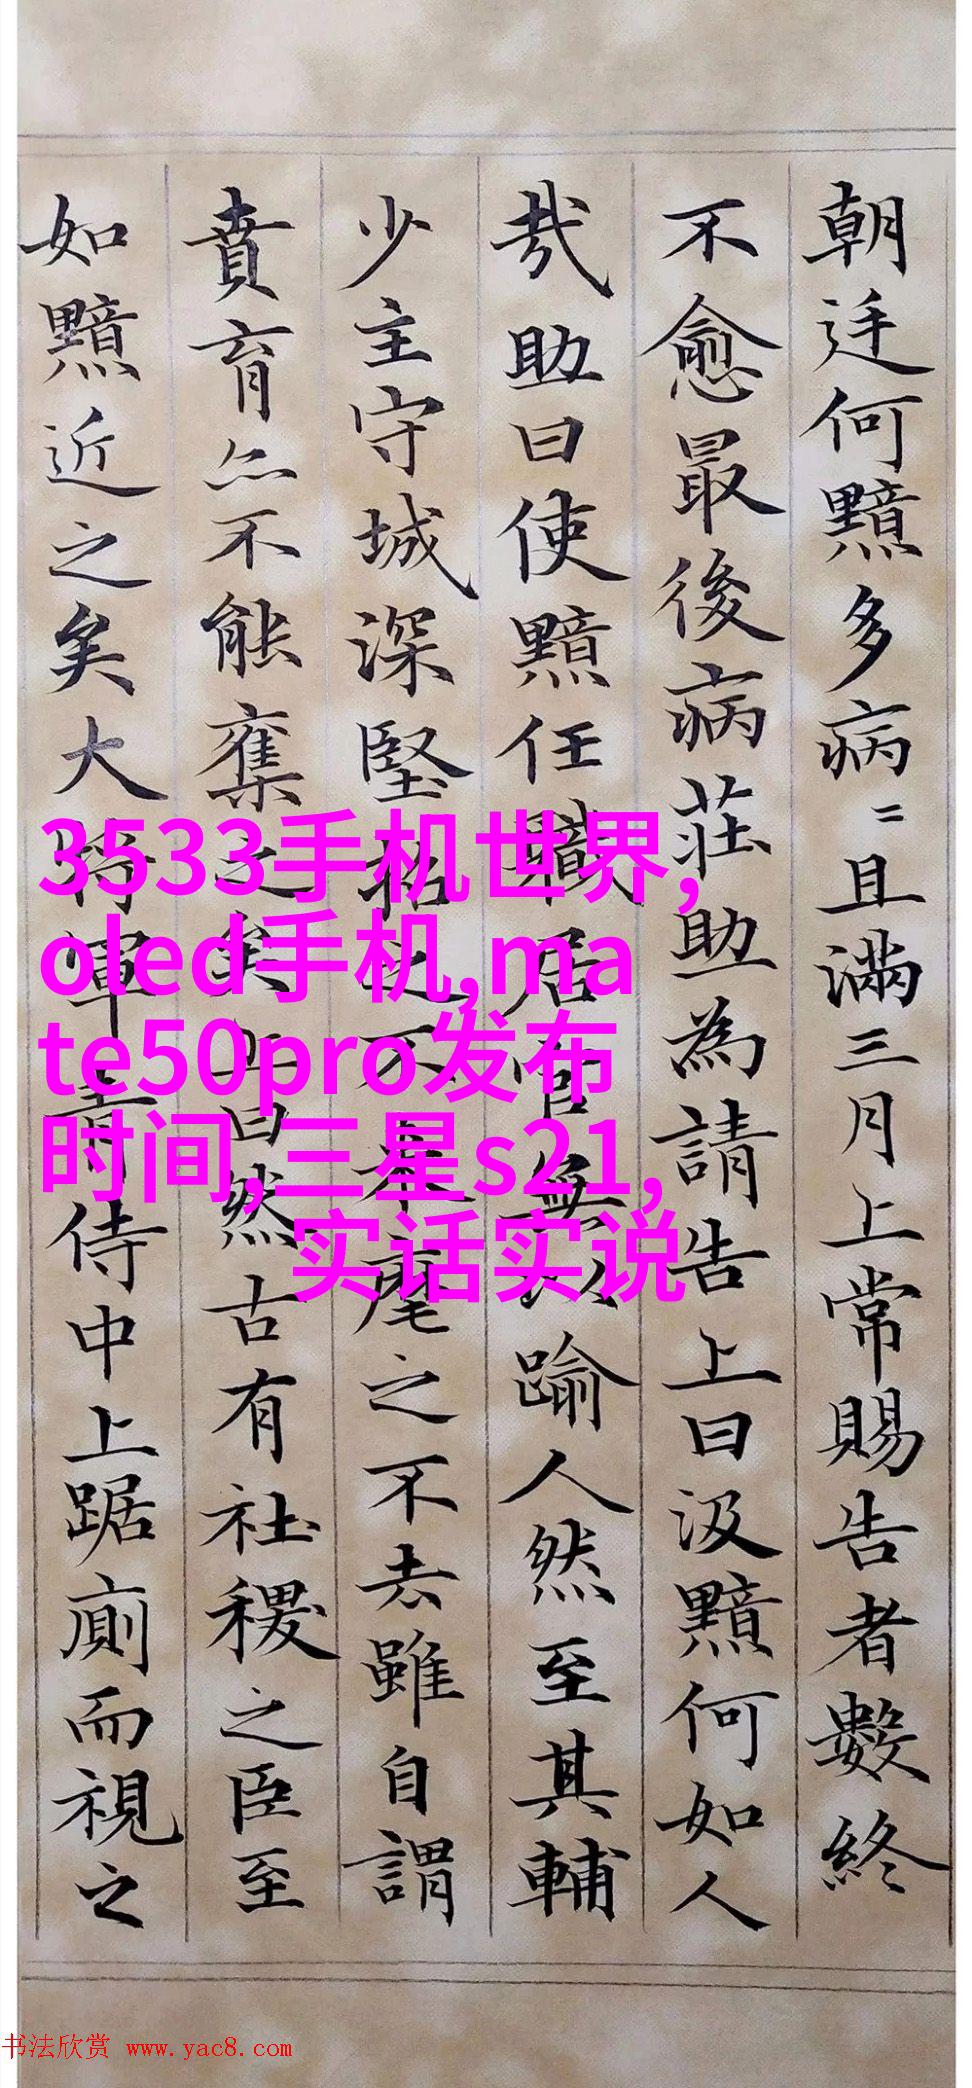 朝廷何黯多病〻且滿三月上常賜告者數終
不愈最後病莊助為請告上曰汲黯何如人
哉助曰使黯任職居官無以踰人然至其輔
少主守城深堅招之不來麾之不去雖自謂
賁育亦不能奪之矣上曰然古有社稷之臣至
如黯近之矣大將軍青侍中上踞廁而視之
3533手机世界,
oled手机,ma
te50pro发布
时间,三星s21,
实话实说
书法欣赏 www.yac8.com